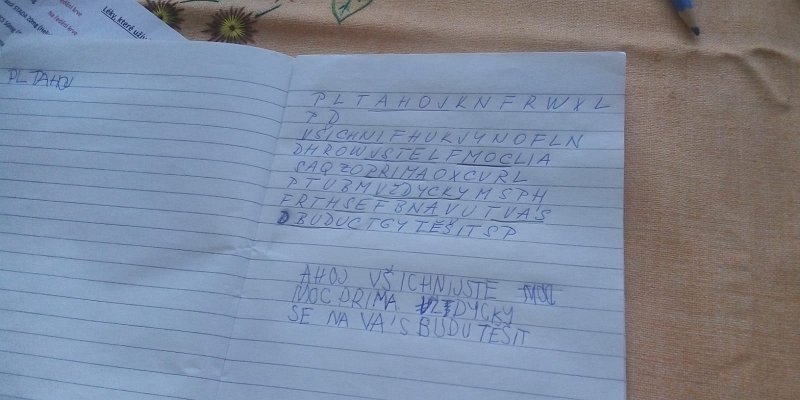 Léky, které
PL TAHOJ
PLTAHOJKNFRWXL
PD
VŠICHNIFHUKJYNOFLN
DHROWJSTELFMOCLIA
SAQZOPRIMAOXCVRL
PTUBMVZDYCKYMSPH
FRTHSEFBNAVUTVA'S
DBUDUCTGYTĚŠITSP
AHOJ VŠICHNIJSTE
MOC PRIMA VZDYCKY
SE NA VA'S BUDU TĚŠIT